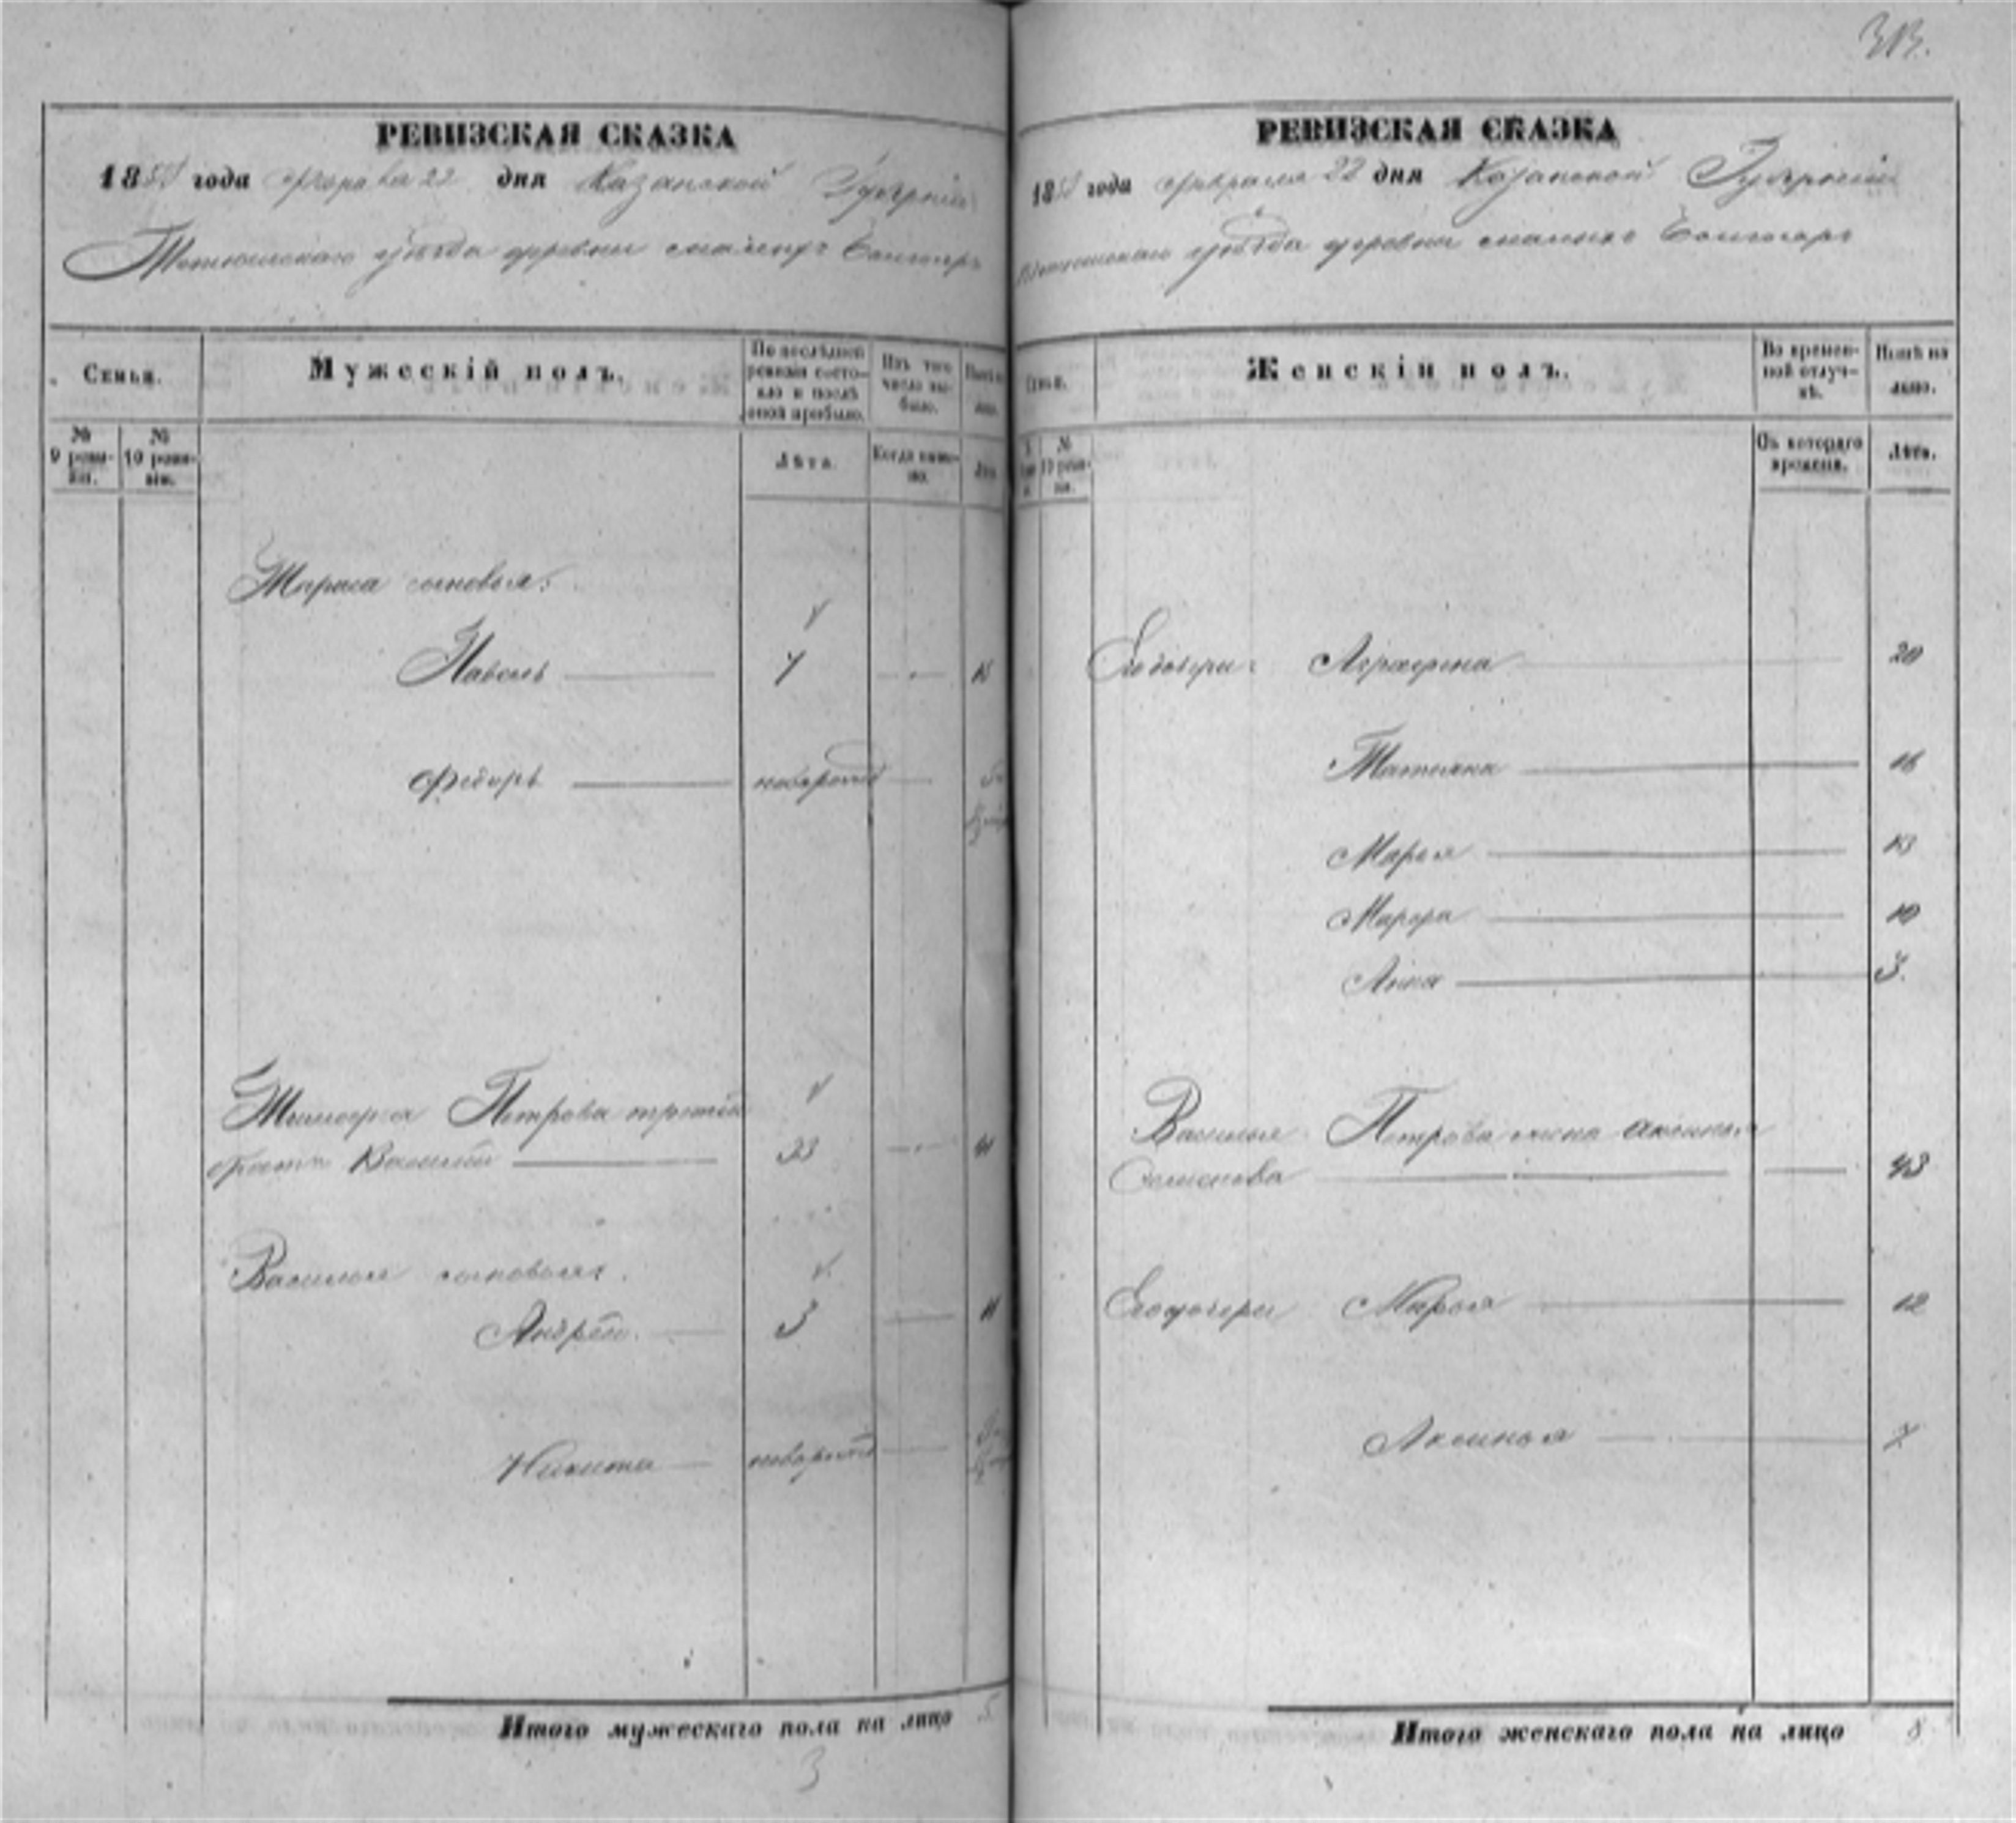 313.
РЕВИЗСКАЯ СКАЗКА
1858 года февраля 22 дня Казанской Губерніи
Тетюшскаго уѣзда деревни
Семья.
Мужескій полъ.
По послѣдней ревизіи состояло и послѣ оной прибыло.
Изъ того числа выбыло.
№ 9 ревизіи.
№ 10 ревизіи.
Лѣта.
Когда именно.
Тараса сыновья:
Павелъ 7 15
Федоръ новорожд
Тимофея Петрова третій
братъ Василій 33 41
Василья сыновья:
Андрей 3 11
Никита новорожд
Итого мужескаго пола на лицо 5
3
РЕВИЗСКАЯ СКАЗКА
1858 года февраля 22 дня Казанской Губерніи
Тетюшскаго уѣзда деревни
Женскій полъ.
Во временной отлучкѣ.
Нынѣ на лицо.
№ 10 ревизіи.
Съ котораго времени.
Лѣта.
Его дочери: Аграфена 20
Татьяна 16
Марья 13
Марфа 10
Анна 3.
Василья Петрова жена Аксинья
Семенова 43
Его дочери Марья 12
Аксинья 7
Итого женскаго пола на лицо 8